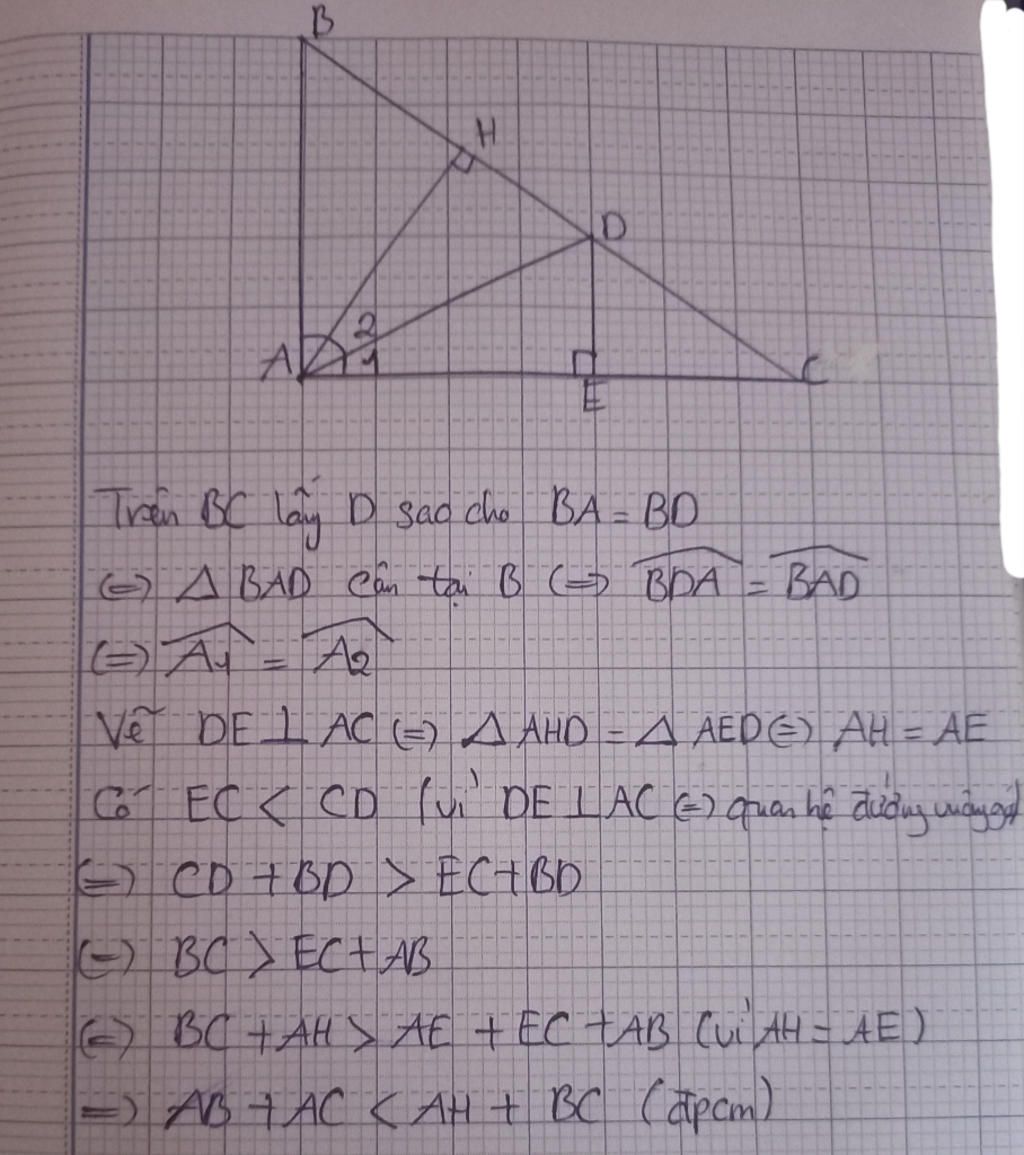 B
H
D
A 2
1
C
E
Trên BC lấy D sao cho BA = BD
(=) Δ BAD cân tại B (=) \widehat{BDA} = \widehat{BAD}
(=) \widehat{A1} = \widehat{A2}
Vẽ DE ⊥ AC (=) Δ AHD = Δ AED (=) AH = AE
Có EC < CD (vì DE ⊥ AC (=) quan hệ đường vuông
(=) CD + BD > EC + BD
(=) BC > EC + AB
(=) BC + AH > AE + EC + AB (vì AH = AE)
=) AB + AC < AH + BC (đpcm)